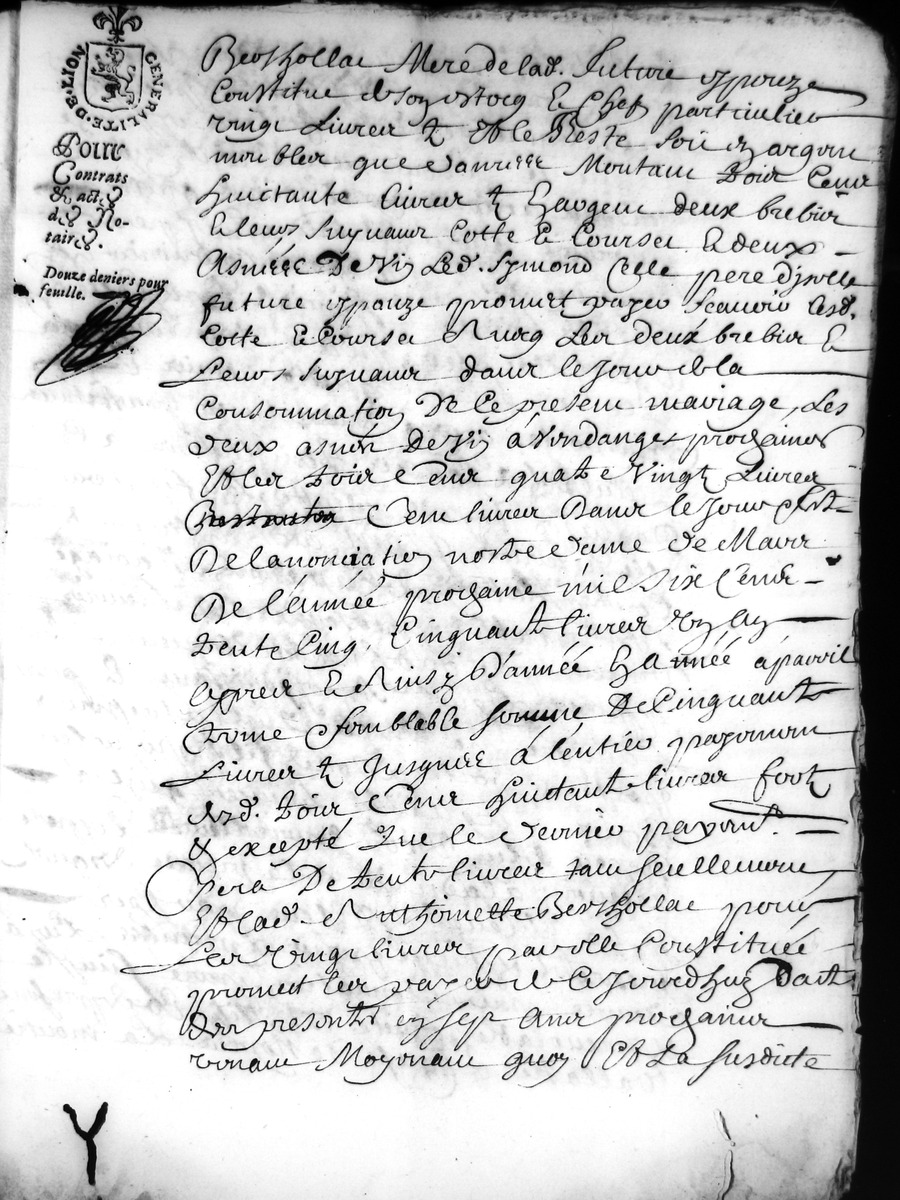 GENERALITE · DE · LION
Pour
Contrats
& actes
des No-
taires.
Douze deniers pour
feuille.
Berthollac Mere de lad. future espouze
Constitue de son estocq & Chef particulier
vingt Livres t Et le Reste soit en argent
meubles que danrees Montant Trois Cens
huictante livres t En argent deux brebis
& leurs suyvans Cotte & Courset & deux
Asnées De vin Led. Symond Celle pere d'jcelle
future espouze promet payer scavoir lesd.
Cotte & Courset Les deux brebis &
Leurs suyvans dans le jour de la
Consommation De Ce present mariage, Les
deux asnées De vin à Vendanges prochaines
Et les trois Cens quatre Vingt Livres
Cent livres Dans le jour & feste
De lanonciation nostre dame de Mars
De l'année prochaine mil six Cens
trente Cinq, Cinquante livres
apres & Ainsy D'année En année à pareil
terme semblable somme De Cinquante
Livres t jusques à lentier payement
desd. trois Cens huictante livres
& excepté Que le dernier payemt.
sera De trente livres tant seullement
Et lad. Anthoinette Berthollac pour
Les vingt livres par elle Constituée
promect les payer de Ce jourdhuy datte
des presentes en sept ans prochains
venant Moyenant quoy Et La susdicte